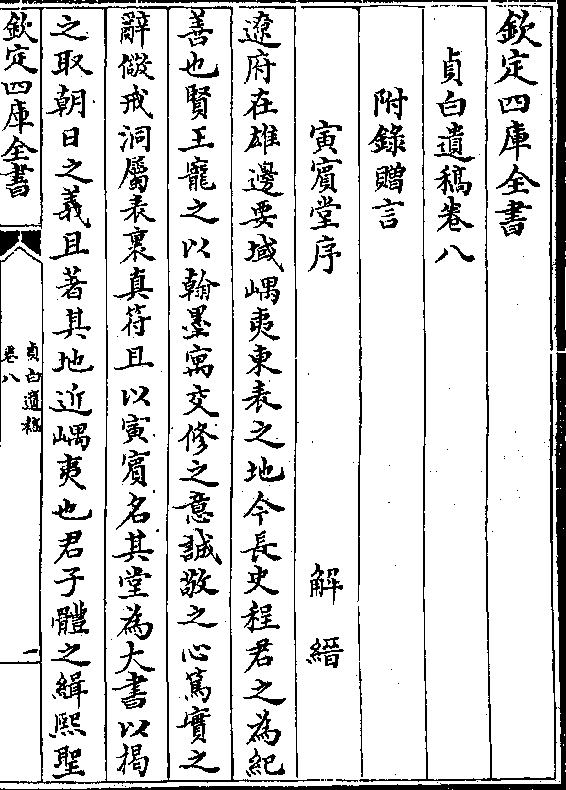 欽定四庫全書
貞白遺稿卷八
附錄贈言
寅賓堂序
解 縉
遼府在雄邊要域嵎夷東表之地今長史程君之為紀
善也賢王寵之以翰墨寓交修之意誠敬之心篤實之
辭儆戒洞屬表裏真符且以寅賓名其堂為大書以揭
之取朝日之義且著其地近嵎夷也君子體之緝熙聖
欽定四庫全書
貞白遺稿
卷八
一